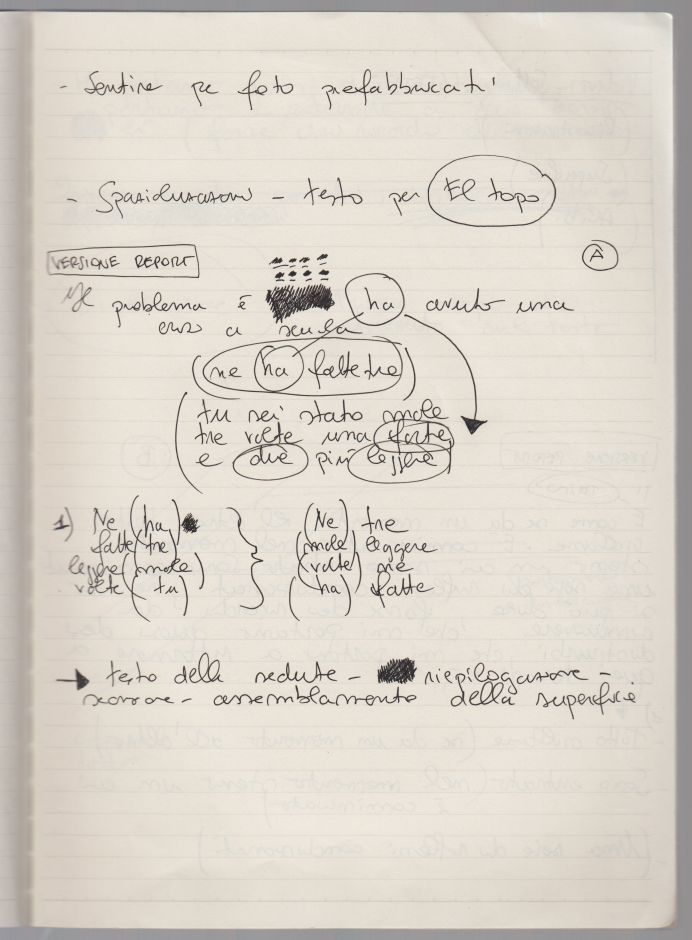 - Sentire per foto prefabbricati
- testo per El topo
VERSIONE REPORT
A
Il problema è ha avuto una
a scuola
(ne ha fatte tre)
(tu sei stato male
tre volte una forte
e due più leggere
1) Ne (ha) } (Ne) tre
fatte (tre) (male) leggere
leggere (male) (volte) ne
volte (tu) (ha) fatte
→ testo delle sedute - riepilogazione -
- assemblamento della superficie